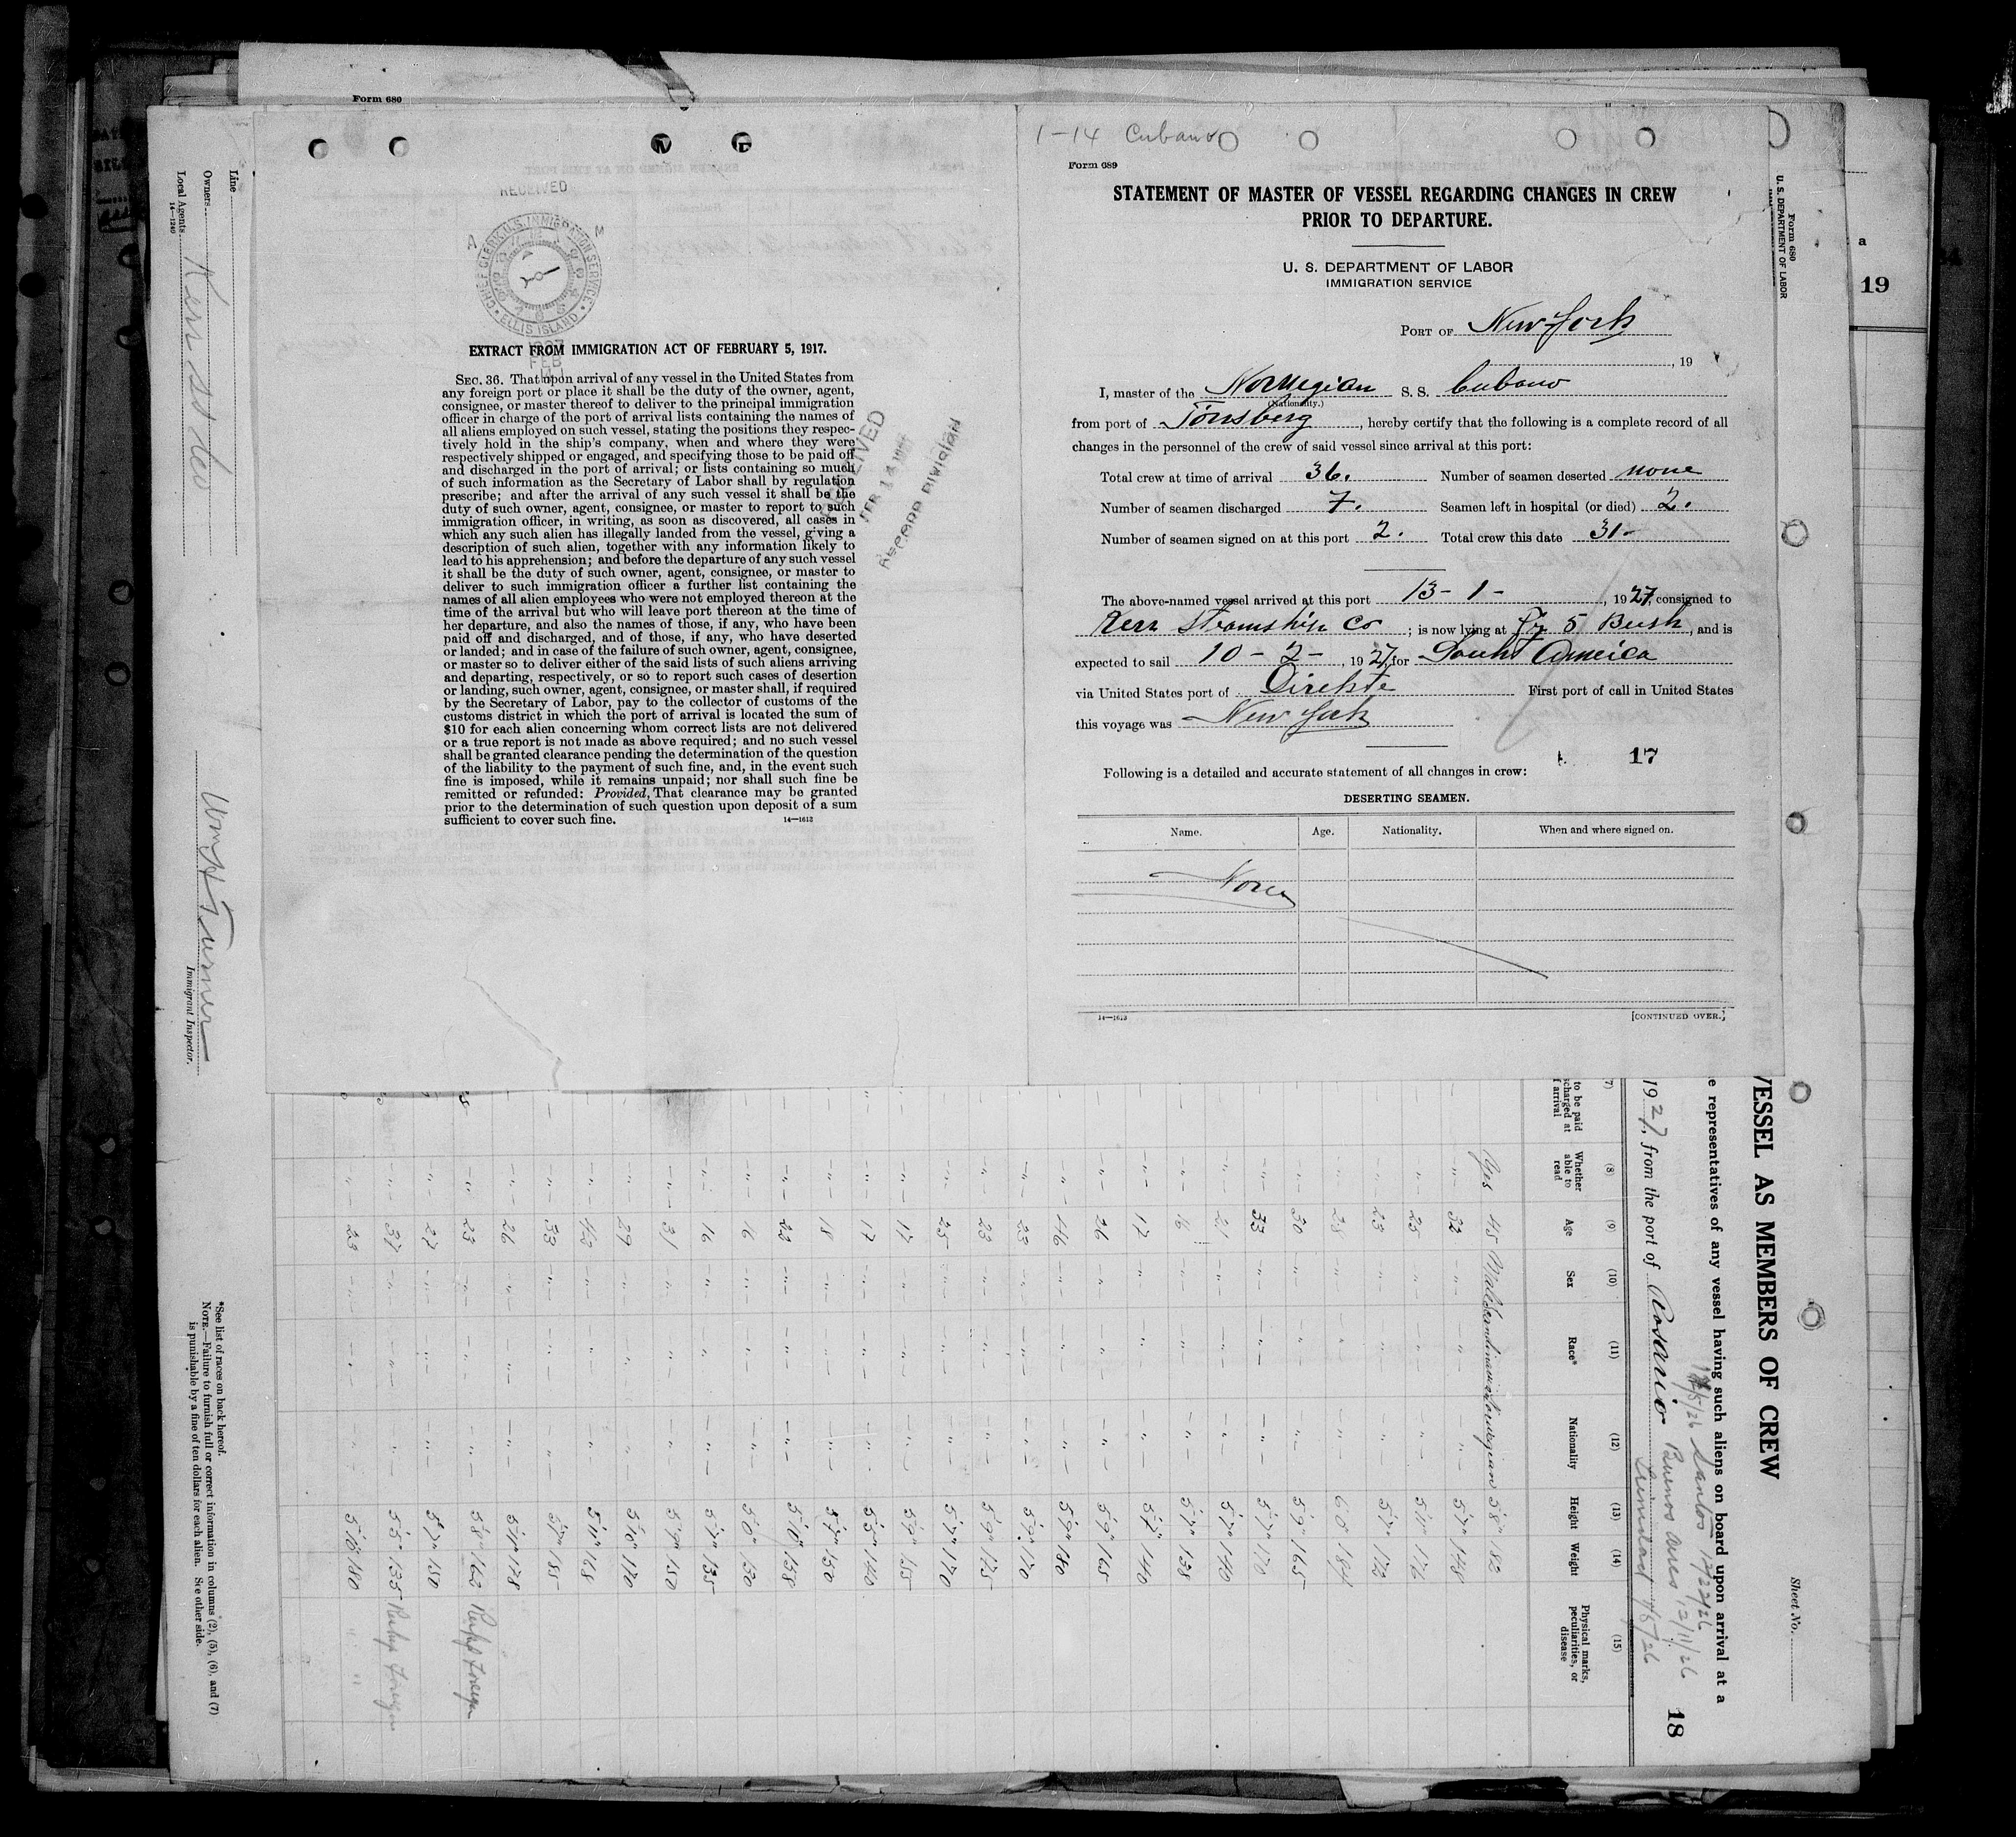 Form 680
1-14 Cubano
Form 689
STATEMENT OF MASTER OF VESSEL REGARDING CHANGES IN CREW
PRIOR TO DEPARTURE.
U. S. DEPARTMENT OF LABOR
IMMIGRATION SERVICE
PORT OF New York
, 19
I, master of the Norwegian S. S. Cubano
(Nationality.)
from port of Tönsberg, hereby certify that the following is a complete record of all
changes in the personnel of the crew of said vessel since arrival at this port:
Total crew at time of arrival 36. Number of seamen deserted none
Number of seamen discharged 7. Seamen left in hospital (or died) 2.
Number of seamen signed on at this port 2. Total crew this date 31-
The above-named vessel arrived at this port 13-1-, 1927, consigned to
Kerr Steamship Co; is now lying at 5 Bush, and is
expected to sail 10-2-, 1927, for South America
via United States port of Direkte First port of call in United States
this voyage was New York
17
Following is a detailed and accurate statement of all changes in crew:
DESERTING SEAMEN.
Name. Age. Nationality. When and where signed on.
None
14—1613
[CONTINUED OVER.]
RECEIVED
A M
CHIEF CLERK U.S. IMMIGRATION SERVICE
ELLIS ISLAND
1927
FEB
EXTRACT FROM IMMIGRATION ACT OF FEBRUARY 5, 1917.
SEC. 36. That upon arrival of any vessel in the United States from
any foreign port or place it shall be the duty of the owner, agent,
consignee, or master thereof to deliver to the principal immigration
officer in charge of the port of arrival lists containing the names of
all aliens employed on such vessel, stating the positions they respec-
tively hold in the ship's company, when and where they were
respectively shipped or engaged, and specifying those to be paid off
and discharged in the port of arrival; or lists containing so much
of such information as the Secretary of Labor shall by regulation
prescribe; and after the arrival of any such vessel it shall be the
duty of such owner, agent, consignee, or master to report to such
immigration officer, in writing, as soon as discovered, all cases in
which any such alien has illegally landed from the vessel, giving a
description of such alien, together with any information likely to
lead to his apprehension; and before the departure of any such vessel
it shall be the duty of such owner, agent, consignee, or master to
deliver to such immigration officer a further list containing the
names of all alien employees who were not employed thereon at the
time of the arrival but who will leave port thereon at the time of
her departure, and also the names of those, if any, who have been
paid off and discharged, and of those, if any, who have deserted
or landed; and in case of the failure of such owner, agent, consignee,
or master so to deliver either of the said lists of such aliens arriving
and departing, respectively, or so to report such cases of desertion
or landing, such owner, agent, consignee, or master shall, if required
by the Secretary of Labor, pay to the collector of customs of the
customs district in which the port of arrival is located the sum of
$10 for each alien concerning whom correct lists are not delivered
or a true report is not made as above required; and no such vessel
shall be granted clearance pending the determination of the question
of the liability to the payment of such fine, and, in the event such
fine is imposed, while it remains unpaid; nor shall such fine be
remitted or refunded: Provided, That clearance may be granted
prior to the determination of such question upon deposit of a sum
sufficient to cover such fine.
14—1613
RECEIVED
FEB 14
RECORD DIVISION
Form 680
U. S. DEPARTMENT OF LABOR
a
19
VESSEL AS MEMBERS OF CREW
Sheet No.
e representatives of any vessel having such aliens on board upon arrival at a
1927, from the port of Rosario
Santos 12/22/26
Buenos Aires 12/11/26
18
(7) (8) (9) (10) (11) (12) (13) (14) (15)
to be paid
charged at
arrival
Whether able to read
Age
Sex
Race*
Nationality
Height
Weight
Physical marks, peculiarities, or disease
Yes 45 Male Scandinavian Norwegian 5'8" 182
32 5'7" 148
25 5'11" 176
23 5'7" 172
28 6'0" 184
30 5'9" 165
33 5'7" 170
21 5'7" 140
16 5'7" 138
17 5'7" 140
26 5'9" 165
46 5'9" 180
23 5'9" 170
23 5'9" 175
25 5'7" 170
17 5'9" 155
17 5'5" 140
18 5'7" 150
22 5'10" 158
16 5'0" 130
16 5'7" 135
31 5'9" 150
29 5'8" 170
43 5'11" 168
33 5'7" 155
26 5'11" 178
23 5'8" 162
27 5'7" 150
37 5'5" 135
23 5'8" 180
Line
Owners
Local Agents
14—1240
Kerr SS Co
Wm H Turner
Immigrant Inspector.
*See list of races on back hereof.
NOTE.—Failure to furnish full or correct information in columns (2), (5), (6), and (7)
is punishable by a fine of ten dollars for each alien. See other side.